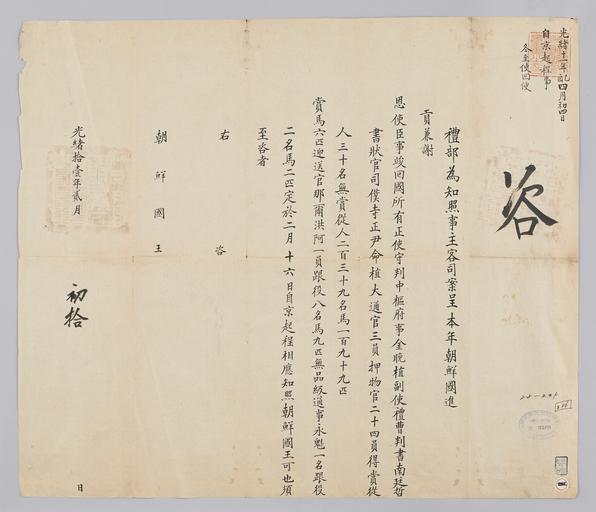 光緒十一年乙酉四月初四日
自京起程事
冬至使回使
咨
禮部為知照事主客司案呈本年朝鮮國進
貢兼謝
恩使臣事竣回國所有正使守判中樞府事金晚植副使禮曹判書南廷哲
書狀官司僕寺正尹命植大通官三員押物官二十四員得賞從
人三十名無賞從人二百三十九名馬一百九十九匹
賞馬六匹迎送官那爾洪阿一員跟役八名馬九匹無品級通事永魁一名跟役
二名馬二匹定於二月十六日自京起程相應知照朝鮮國王可也須
至咨者
右 咨
朝鮮國王
光緒拾壹年貳月 初拾 日